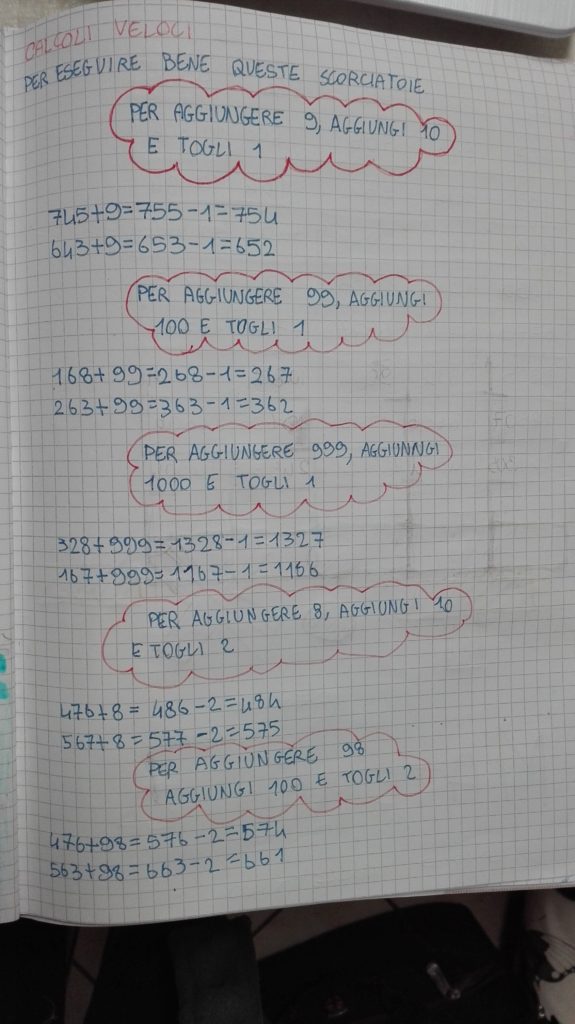 CALCOLI VELOCI
PER ESEGUIRE BENE QUESTE SCORCIATOIE
PER AGGIUNGERE 9, AGGIUNGI 10
E TOGLI 1
745+9=755-1=754
643+9=653-1=652
PER AGGIUNGERE 99, AGGIUNGI
100 E TOGLI 1
168+99=268-1=267
263+99=363-1=362
PER AGGIUNGERE 999, AGGIUNNGI
1000 E TOGLI 1
328+999=1328-1=1327
167+999=1167-1=1166
PER AGGIUNGERE 8, AGGIUNGI 10
E TOGLI 2
476+8= 486-2=484
567+8=577-2=575
PER AGGIUNGERE 98
AGGIUNGI 100 E TOGLI 2
476+98=576-2=574
563+98=663-2=661